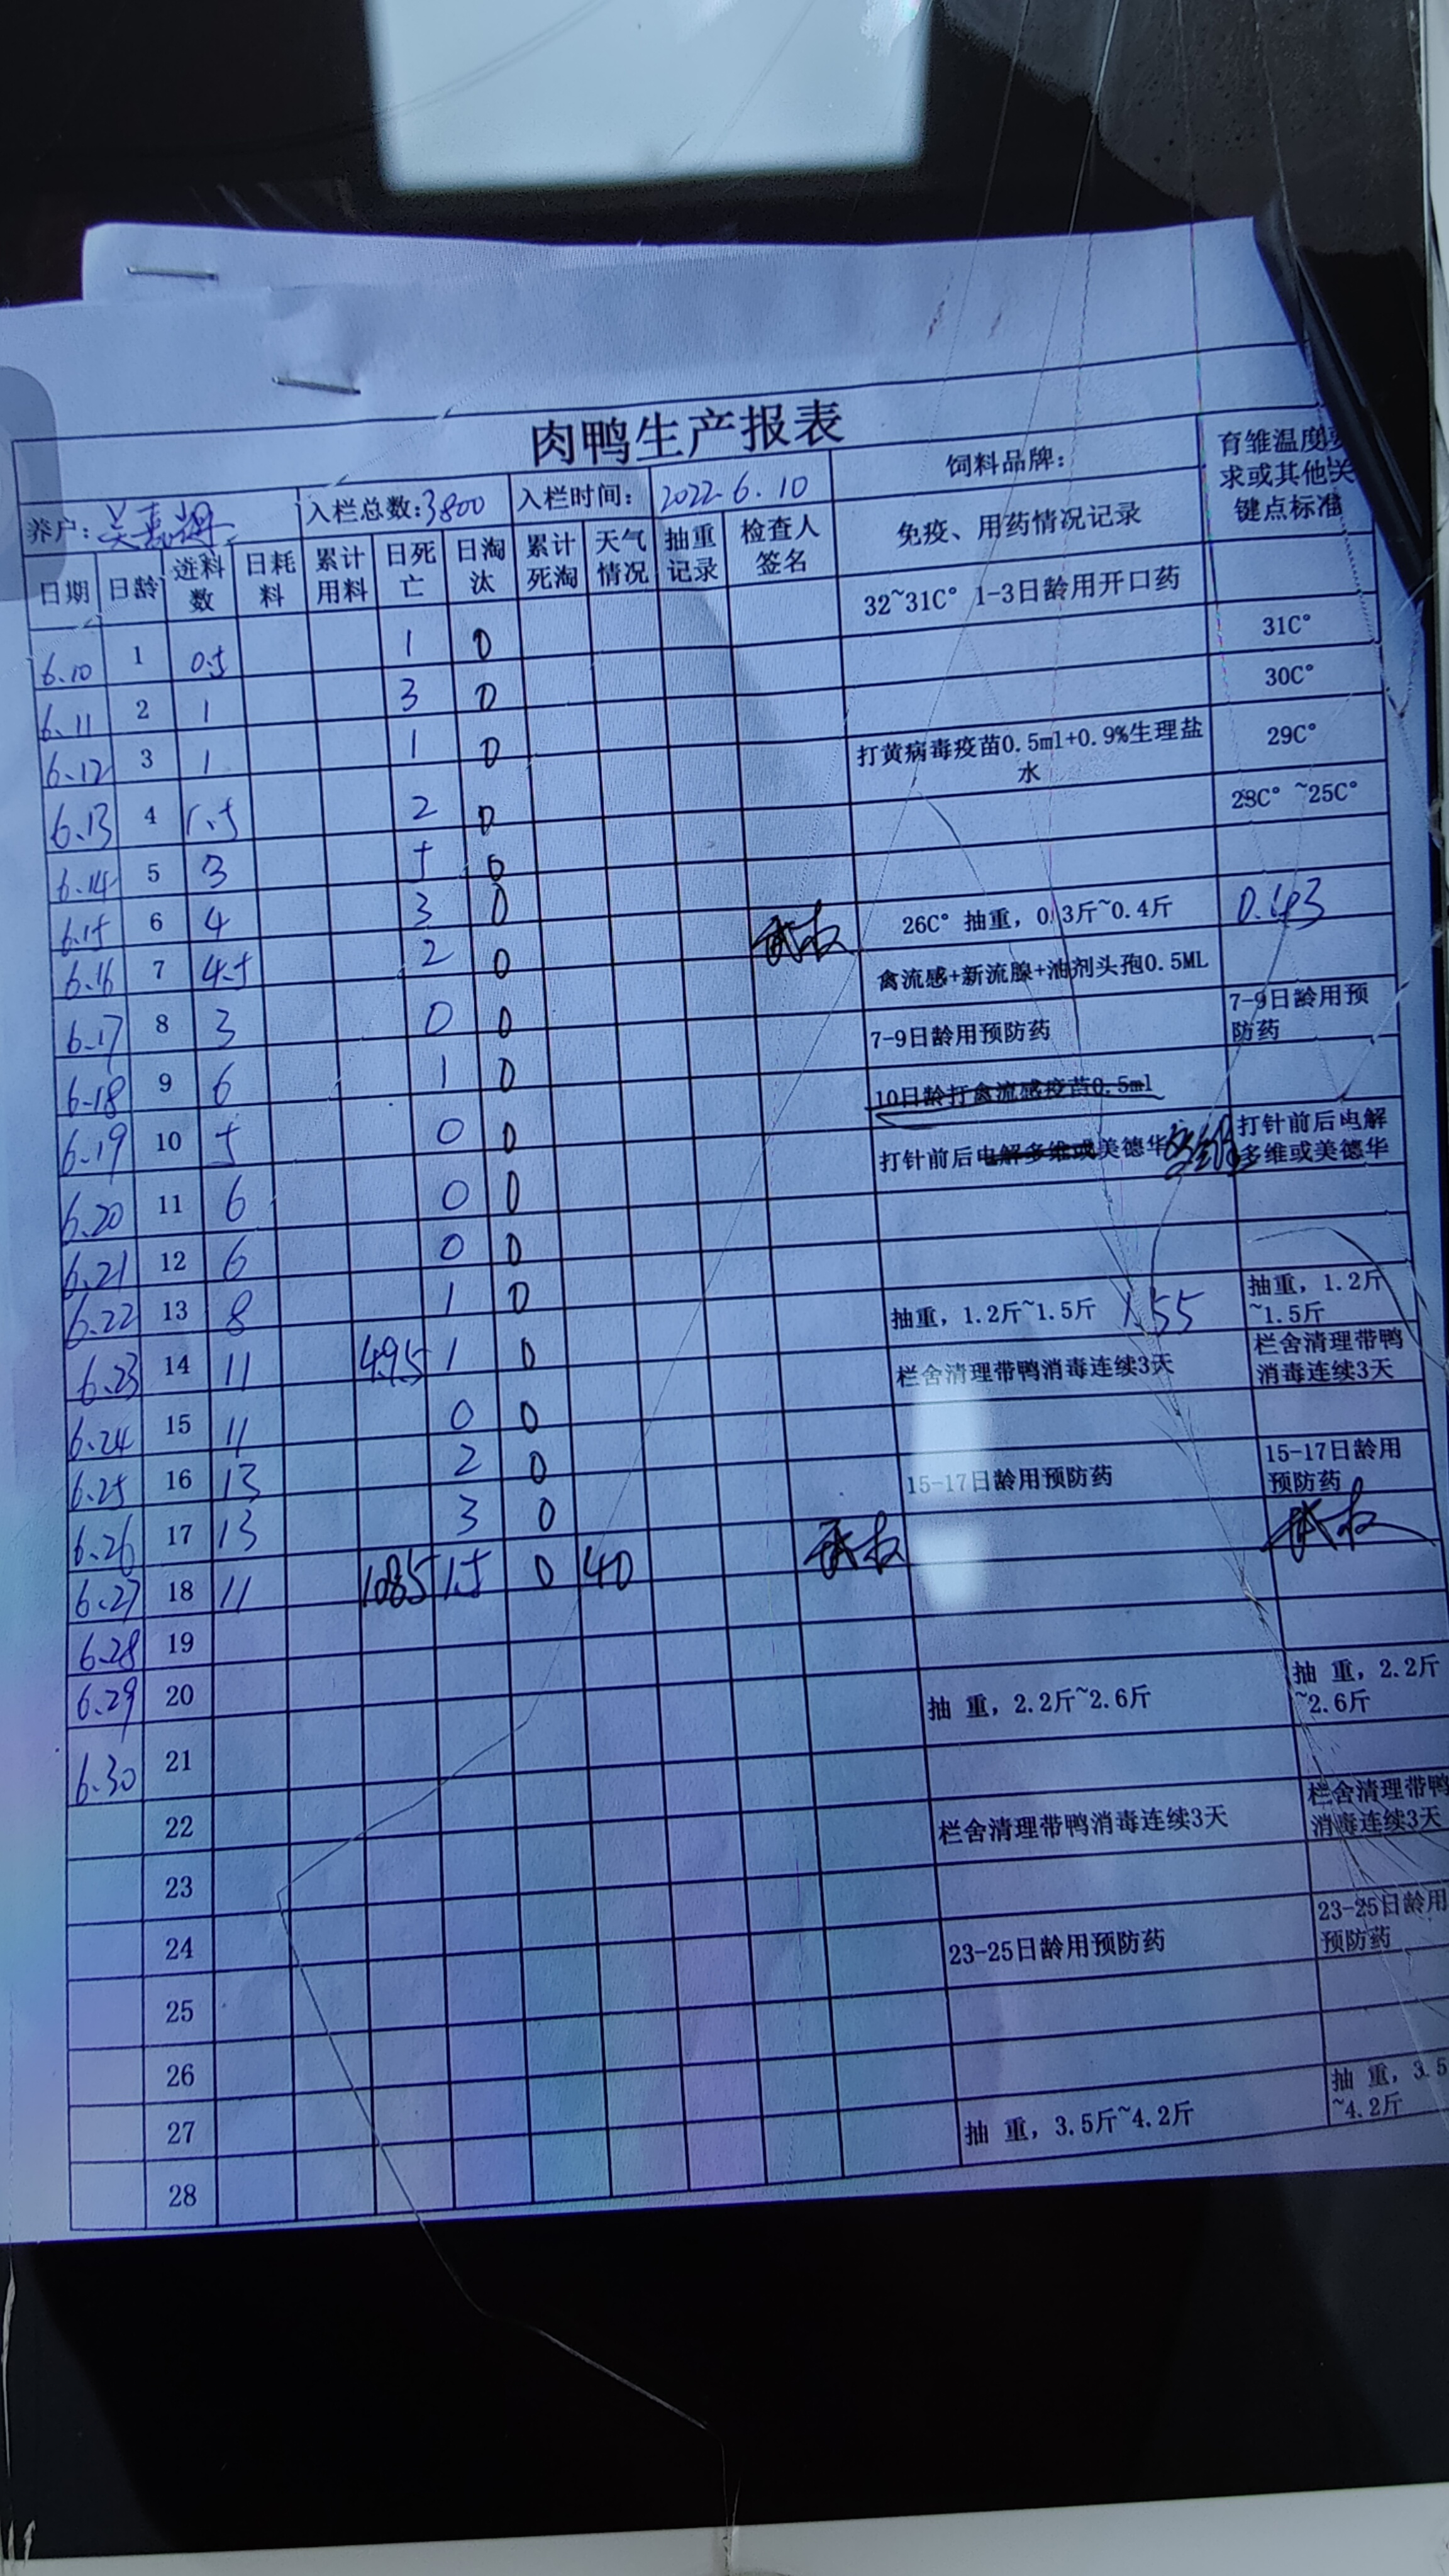 肉鸭生产报表
养户: 入栏总数:3800 入栏时间: 2022.6.10 饲料品牌: 育雏温度要求或其他关键点标准
日期 日龄 进料数 日耗料 累计用料 日死亡 日淘汰 累计死淘 天气情况 抽重记录 检查人签名 免疫、用药情况记录
6.10 1 0.5 1 0 32~31C° 1-3日龄用开口药
6.11 2 1 3 0 31C°
6.12 3 1 1 0 30C°
6.13 4 1.5 2 0 打黄病毒疫苗0.5ml+0.9%生理盐水 29C°
6.14 5 3 5 0 28C° ~25C°
6.15 6 4 3 0
6.16 7 4.5 2 0 26C° 抽重, 0.3斤~0.4斤 0.43
6.17 8 3 0 0 禽流感+新流腺+油剂头孢0.5ML
6.18 9 6 1 0 7-9日龄用预防药 7-9日龄用预防药
6.19 10 5 0 0 10日龄打禽流感疫苗0.5ml
6.20 11 6 0 0 打针前后电解多维或美德华 打针前后电解多维或美德华
6.21 12 6 0 0
6.22 13 8 1 0
6.23 14 11 49.5 1 0 抽重, 1.2斤~1.5斤 1.55 抽重, 1.2斤~1.5斤
6.24 15 11 0 0 栏舍清理带鸭消毒连续3天 栏舍清理带鸭消毒连续3天
6.25 16 13 2 0
6.26 17 13 3 0 15-17日龄用预防药 15-17日龄用预防药
6.27 18 11 108.5 15 0 40
6.28 19
6.29 20
6.30 21 抽 重, 2.2斤~2.6斤 抽 重, 2.2斤~2.6斤
22
23 栏舍清理带鸭消毒连续3天 栏舍清理带鸭消毒连续3天
24
25 23-25日龄用预防药 23-25日龄用预防药
26
27
28 抽 重, 3.5斤~4.2斤 抽 重, 3.5~4.2斤